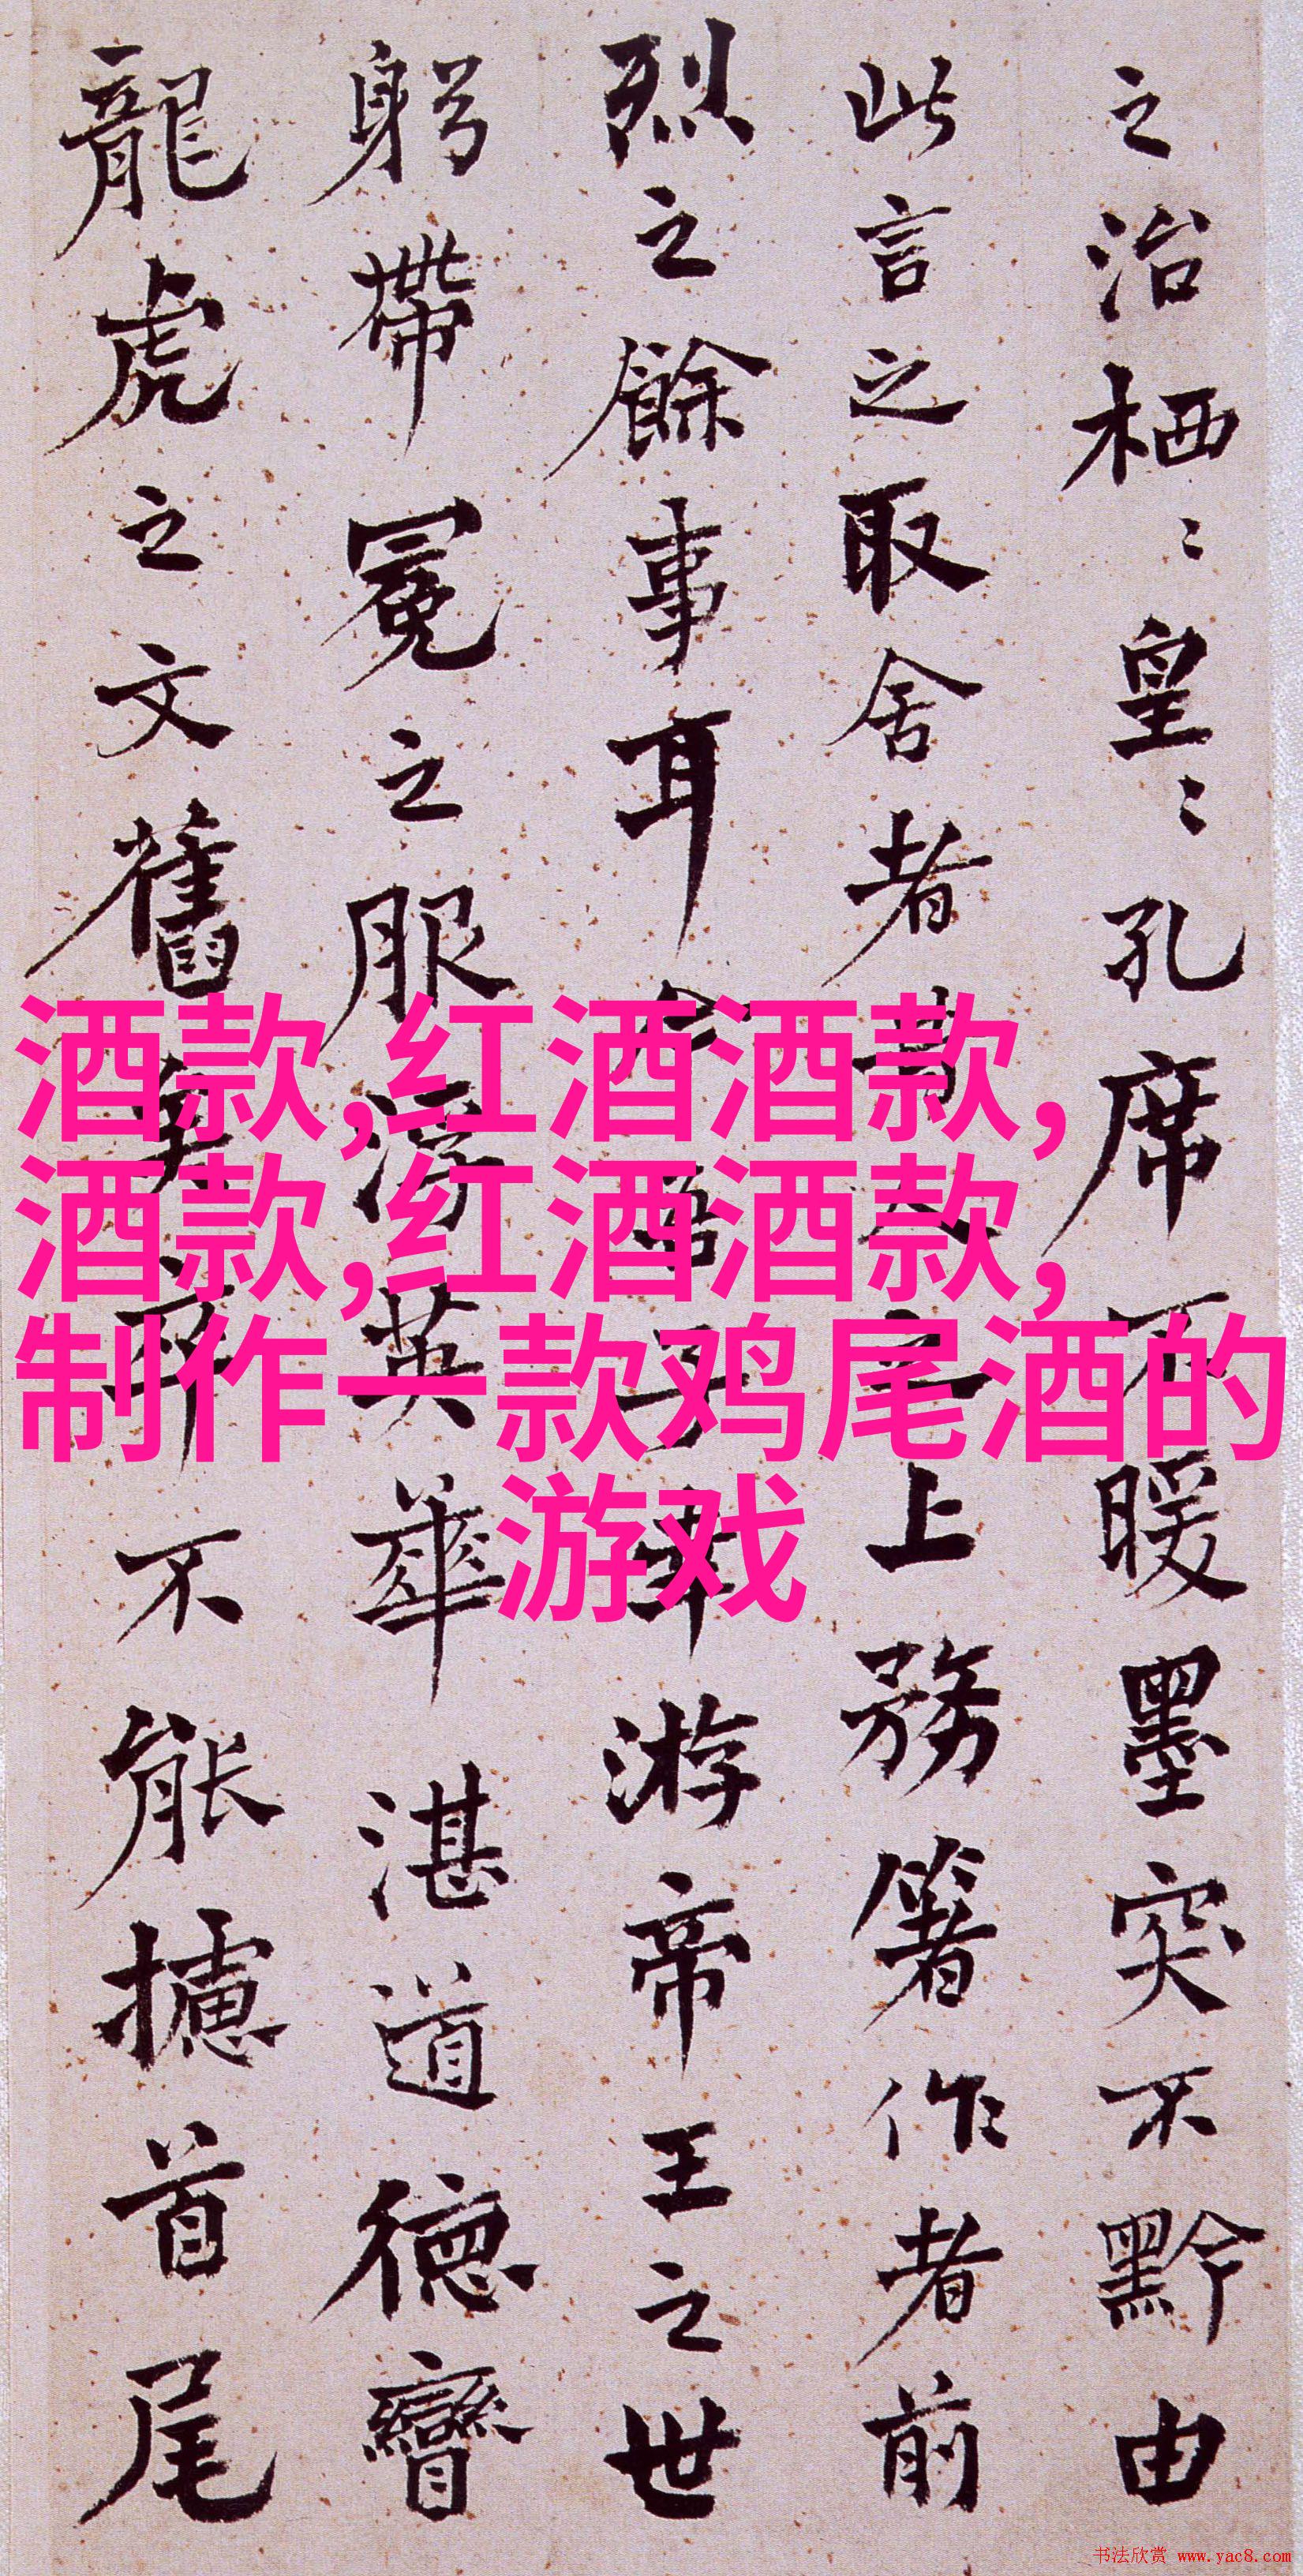 之治栖〻皇〻孔席不暖墨突不黔由
此言之取舍者昔人之上務著作者前
烈之餘事耳今吾子幸游帝王之世
躬帶冕之服浮英華湛道德矕
龍虎之文舊矣卒不能攄首尾
酒款,红酒酒款,
酒款,红酒酒款,
制作一款鸡尾酒的
游戏
书法欣赏 www.yac8.com